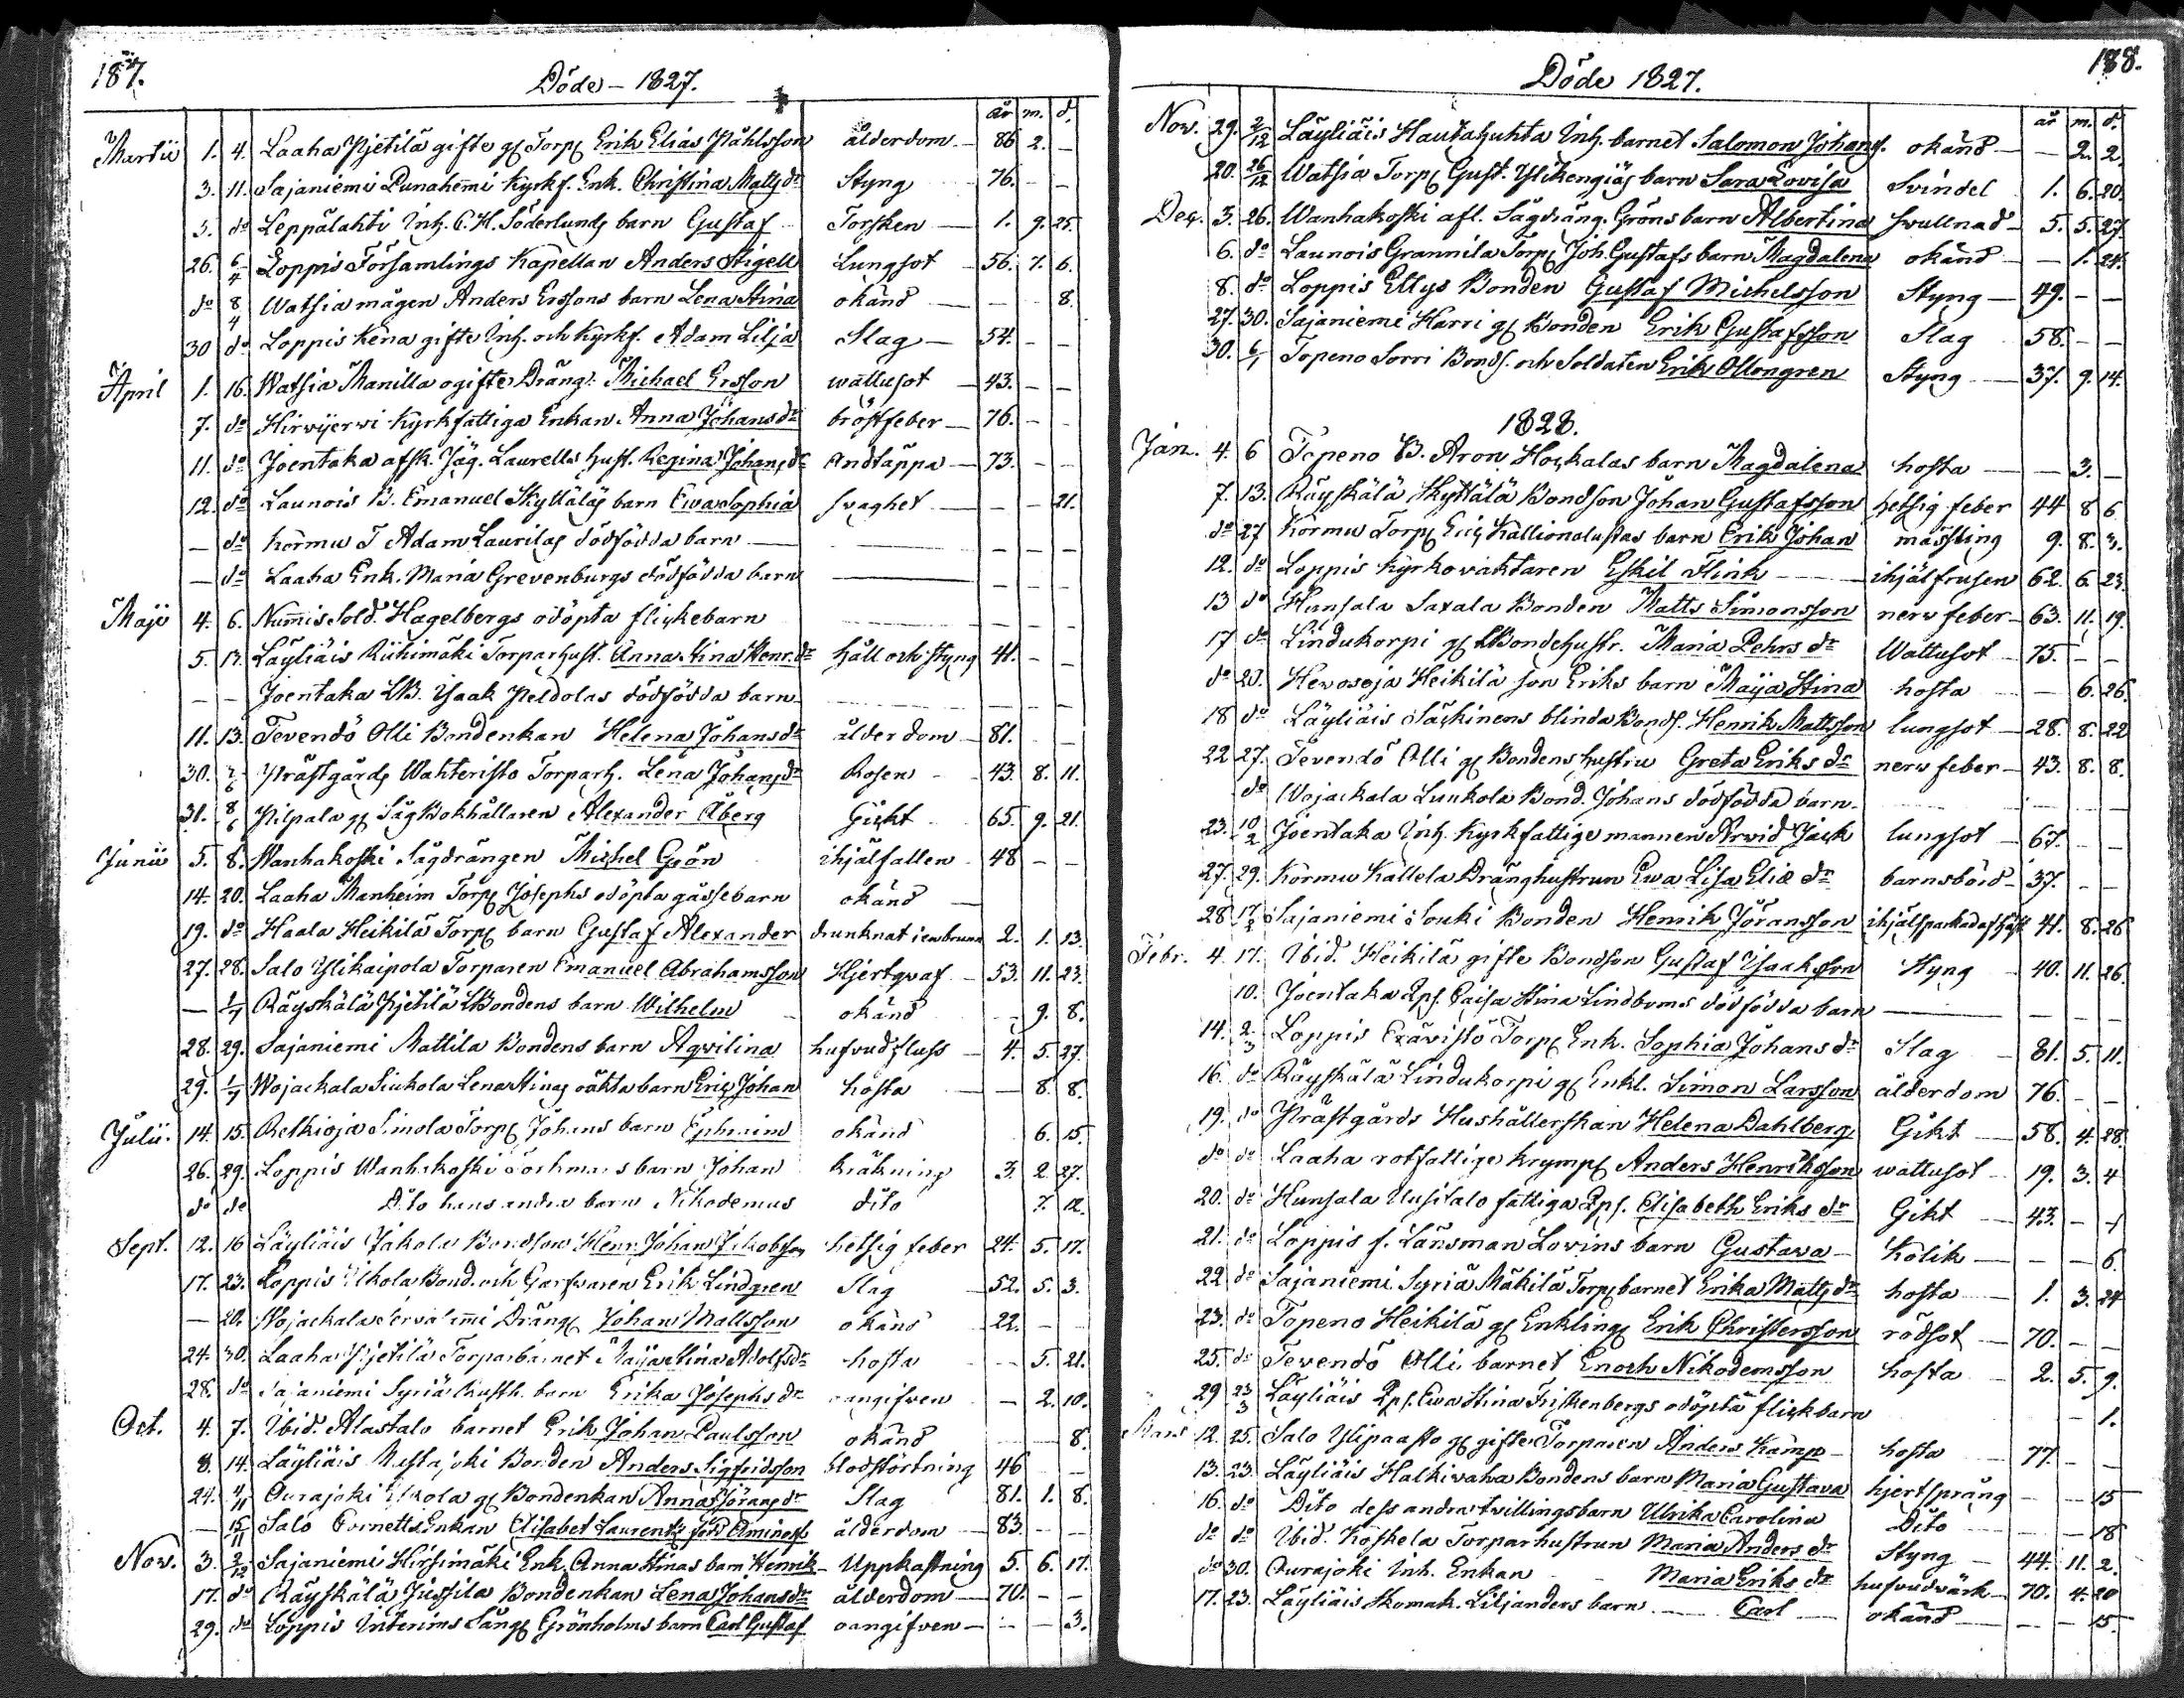 187.
Döde - 1827.
år m. d.
Martii 1. 4. Laaha Pjetilä gifte gl Torp. Erik Elias Påhlsson ålderdom 86 2. —
3. 11. Sajaniemi Punahemi Kyrkf. Enk. Christina Matts dr Styng 76. — —
3. do Leppälahti Inh. C. H. Söderlunds barn Gustaf Torsken 1. 9. 25.
26. 6/4 Loppis Församlings Kapellan Anders Stigell Lungsot 56. 7. 6.
do 8/4 Watsia mågen Anders Erssons barn Lena Stina okänd — — 8.
30 do Loppis Kena gifte Inh. och Kyrkf. Adam Lilja Slag 54. — —
April 1. 16. Watsia Manilla ogifte Dräng. Michael Ersson wattusot 43. — —
7. do Hirwijerwi Kyrkfattiga Enkan Anna Johans dr bröstfeber 76. — —
11. do Joentaka afsk. Jäg. Laurells hust. Regina Johans dr Andtäppa 73. — —
12. do Launois B. Emanuel Skyttäläs barn Ewa Sophia svaghet — — 21.
— do Kormu T Adam Laurilas dödfödda barn — — — —
— do Laaha Enk. Maria Grevenburgs dödfödda barn — — — —
Maji 4. 6. Numis Sold. Hagelbergs odöpta flickebarn — — —
5. 13. Läyliäis Riihimäki Torparhust. Anna Stina Henr. dr håll och styng 41. — —
— — Joentaka LB. Isaak Peldolas dödfödda barn — — —
11. 13. Tevendö Olli Bondenkan Helena Johans dr ålderdom 81. — —
30. 7/6 Prästgårds Wahteristo Torparh. Lena Johans dr Rosen 43. 8. 11.
31. 8/6 Pilpala gl Såg Bokhållaren Alexander Åberg Gickt 65. 9. 21.
Junii 5. 8. Wanhakoski Sågdrängen Michel Grön ihjälfallen 48 — —
14. 20. Laaha Manheim Torp. Josephs odöpta gåssebarn okänd —
19. do Haala Heikilä Torp. barn Gustaf Alexander drunknat i en brunn 2. 1. 13.
27. 28. Salo Ylikaipola Torparen Emanuel Abrahamsson Hjertqwaf 53. 11. 23.
— 1/7 Räyskälä Pjetilä LBondens barn Wilhelm okänd — 9. 8.
28. 29. Sajaniemi Mattila Bondens barn Aqvilina hufvudfluss 4. 5. 27.
29. 1/7 Wojackala Siukola Lena Stinas oäkta barn Eric Johan hosta — 8. 8.
Julii. 14. 15. Retkioja Simola Torp. Johans barn Ephraim okänd 6. 15.
26. 29. Loppis Wanhakoski barn Johan Kräkning 3. 2. 27.
do do Dito hans andra barn Nikodemus dito 7. 12.
Sept. 12. 16 Läyliäis Jakola Bondson Henr. Johan Jakobsson hetsig feber 24. 5. 17.
17. 23. Loppis Bond. och Garfvaren Erik Lindgren Slag 52. 5. 3.
— 20. Wojackala Dräng Johan Mattsson okänd 22. — —
24. 30 Laaha Pjetilä Torparbarnet Maija Stina Adolfs dr hosta — 5. 21.
28. do Sajaniemi Syriä barn Erika Josephs dr oangifven — 2. 10.
Oct. 4. 7. Ibid. Alastalo barnet Erik Johan Paulsson okänd — 8.
8. 14. Läyliäis Mustajoki Bonden Anders Sigfridsson blodstörtning 46 — —
24. 4/11 Ourajoki gl Bondenkan Anna Jörans dr Slag 81. 1. 8.
— 15/11 Salo Cornetts Enkan Elisabet ålderdom 83. — —
Nov. 3. 2/12 Sajaniemi Hirsimäki Enk. Anna Stinas barn Henrik Uppkastning 5. 6. 17.
17. do Räyskälä Jussila Bondenkan Lena Johans dr ålderdom 70. — —
29. do Loppis Interims Sång. Grönholms barn Carl Gustaf oangifven — — 3.
188.
Döde 1827.
år m. d.
Nov. 29. 2/12 Läyliäis Hautakuhta Inh. barnet Salomon Johans. okänd — 2. 2.
20. 26/12 Watsia Torp. Gust. Ylikengiäs barn Sara Lovisa Svindel 1. 6. 20.
Dec. 3. 26. Wanhakoski afl. Sågdräng. Gröns barn Albertina svullnad 5. 5. 27.
6. do Launois Grannila Torp. Joh. Gustafs barn Magdalena okänd — 1. 24.
8. do Loppis Ellys Bonden Gustaf Michelsson Styng 49. — —
27. 30. Sajaniemi Harri gl Bonden Erik Gustafsson Slag 58. — —
30. 6/1 Topeno Sorri Bonds. och Soldaten Erik Ollongren Styng 37. 9. 14.
1828.
Jan. 4. 6 Topeno B. Aron Hockalas barn Magdalena hosta — 3. —
7. 13. Räyskälä Skyttälä Bondson Johan Gustafsson hetsig feber 44 8 6
do 27 Kormu Torp. Eric Kallionalustas barn Erik Johan mässling 9. 8. 3.
12. do Loppis Kyrkovaktaren Eskil Flink ihjälfrusen 62. 6. 23
13 do Hunsala Saxala Bonden Matts Simonsson nerw feber 63. 11. 19.
17 do Lindukorpi gl LBondehustr. Maria Pehrs dr Wattusot 75. — —
do 20. Hevosoja Heikilä son Eriks barn Maija Stina hosta — 6. 26.
18 do Läyliäis Säckinens blinda Bonds. Henrik Mattsson lungsot 28. 8. 22
22 27. Tevendö Olli gl Bondens hustru Greta Eriks dr nerw feber 43. 8. 8.
do Wojackala Luukola Bond. Johans dödfödda barn — — —
23. 10/2 Joentaka Inh. Kyrkfattige mannen Arwid Jack lungsot 67. — —
27. 29. Kormu Kallela Dränghustrun Ewa Lisa Eliæ dr barnsbörd 37. — —
28 17/2 Sajaniemi Souki Bonden Henrik Jöransson ihjälsparkad af häst 41. 8. 26
Febr. 4. 17. Ibid. Heikilä gifte Bondson Gustaf Isaaksson Styng 40. 11. 26.
10. Joentaka Qps. Caisa Stina Lindboms dödfödda barn — — —
14. 2/3 Loppis Eräwistö Torp. Enk. Sophia Johans dr Slag 81. 5. 11.
16. do Räyskälä Lindukorpi gl Enkl. Simon Larsson ålderdom 76. — —
19. do Prästgårds Hushållerskan Helena Dahlberg Gikt 58. 4. 28.
do do Laaha rotfattige krymp. Anders Henriksson wattusot 19. 3. 4
20. do Hunsala Uusitalo fattiga Qps. Elisabeth Eriks dr Gikt 43. — —
21. do Loppis f. Länsman Lovins barn Gustava Kolik — — 6.
22 do Sajaniemi Syriä Mäkilä Torp. barnet Erika Matts dr hosta 1. 3. 24
23. do Topeno Heikilä gl Enkling Erik Christersson rödsot 70. — —
25. do Tevendö Olli barnet Enoch Nikodemsson hosta 2. 5. 9.
29 23/3 Läyliäis Qps. Ewa Stina Friskenbergs odöpta flickbarn — 1.
Mars 12. 25. Salo Ylipaasto gl gifte Torparen Anders Kämp hosta 77. — —
13. 23. Läyliäis Halkivaha Bondens barn Maria Gustava hjertsprång — — 15
16. do Dito dess andra twillingsbarn Ulrika Carolina Dito — — 18
do do Ibid. Koskela Torparhustrun Maria Anders dr Styng 44. 11. 2.
do 30. Ourajoki Inh. Enkan Maria Eriks dr hufvudvärk 70. 4. 20
17. 23. Läyliäis Skomak. Liljanders barn Carl okänd — — 15.